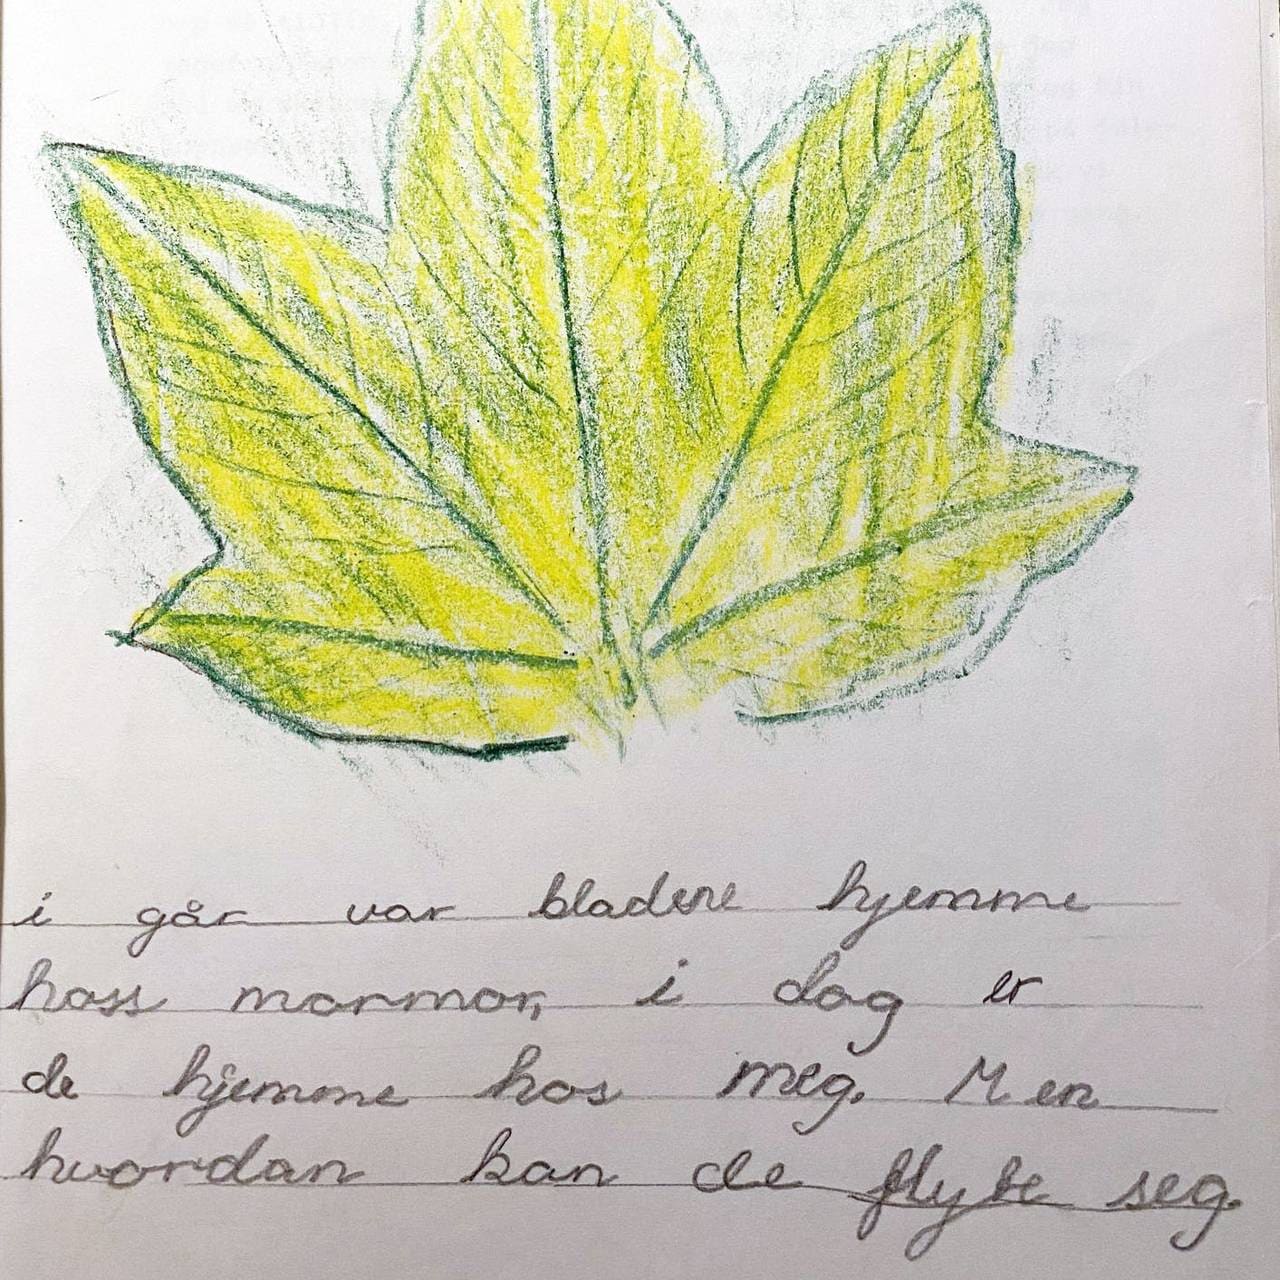 i går var bladene hjemme
hoss mormor, i dag er
de hjemme hos meg. Men
hvordan kan de flytte seg.